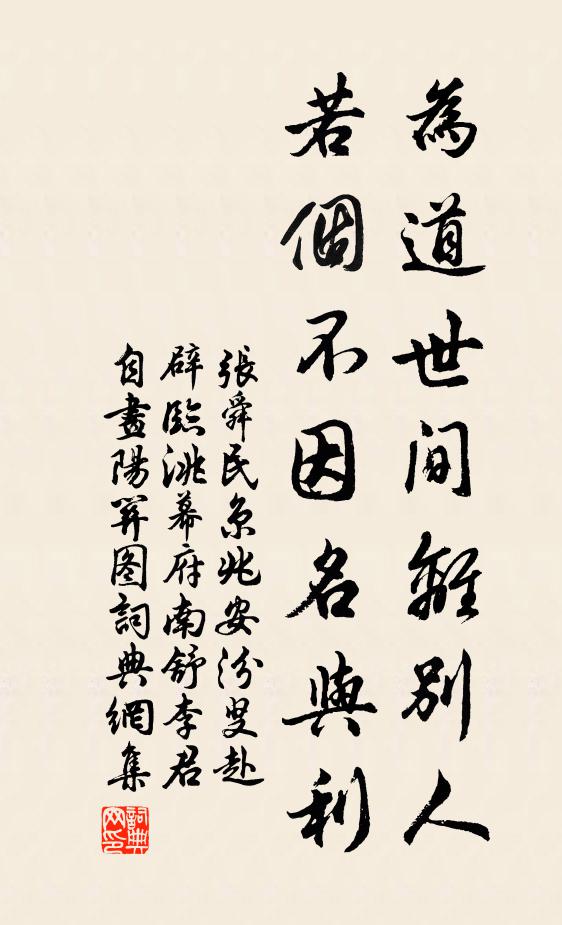 為道世間離別人
若個不因名與利
張舜民京兆安汾叟赴
辟臨洮幕府南舒李君
自畫陽關圖詞典網集
詞典网印